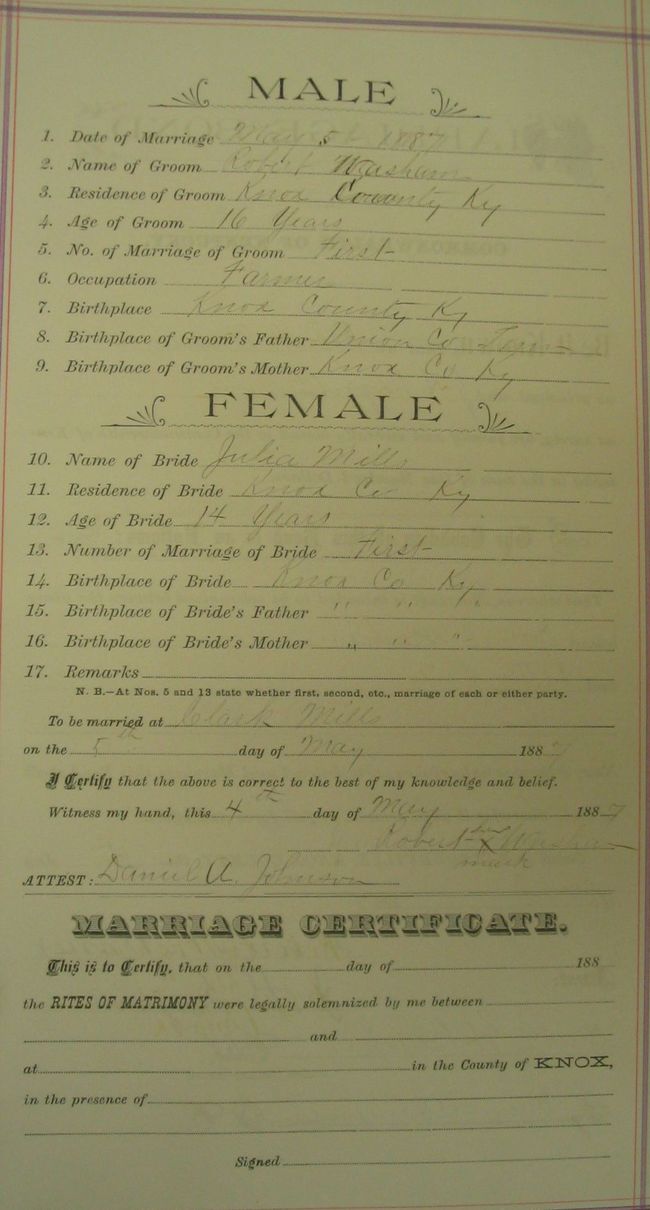 MALE
1. Date of Marriage May 5th 1887
2. Name of Groom Robert Washam
3. Residence of Groom Knox County Ky
4. Age of Groom 16 Years
5. No. of Marriage of Groom First
6. Occupation Farmer
7. Birthplace Knox County Ky
8. Birthplace of Groom's Father Union Co Tenn
9. Birthplace of Groom's Mother Knox Co Ky
FEMALE
10. Name of Bride Julia Mills
11. Residence of Bride Knox Co Ky
12. Age of Bride 14 Years
13. Number of Marriage of Bride First
14. Birthplace of Bride Knox Co Ky
15. Birthplace of Bride's Father " " "
16. Birthplace of Bride's Mother " " "
17. Remarks
N. B.—At Nos. 5 and 13 state whether first, second, etc., marriage of each or either party.
To be married at Clark Mills
on the 5th day of May 1887
I Certify that the above is correct to the best of my knowledge and belief.
Witness my hand, this 4th day of May 1887
Robert his x Washam
mark
ATTEST: Daniel A. Johnson
MARRIAGE CERTIFICATE.
This is to Certify, that on the day of 188
the RITES OF MATRIMONY were legally solemnized by me between
and
at in the County of KNOX,
in the presence of
Signed